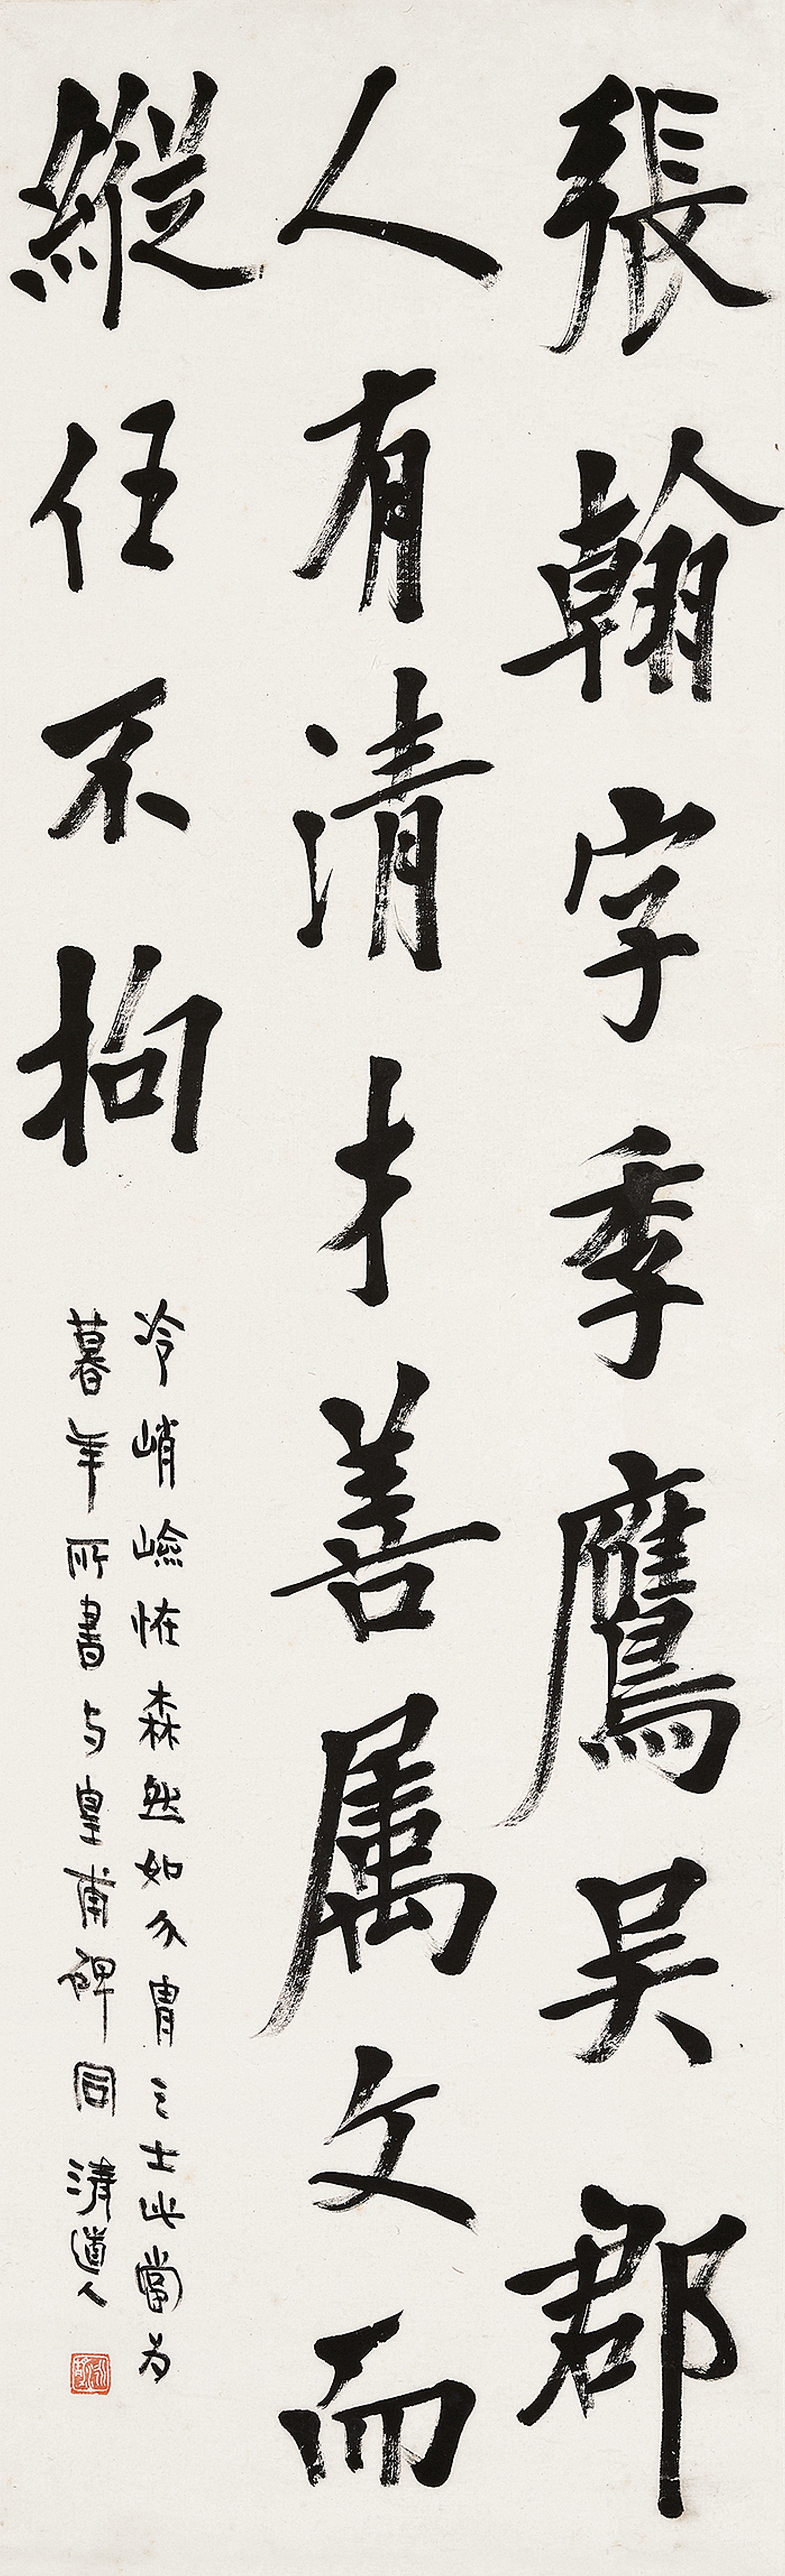 張翰字季鷹吴郡
人有清才善属文而
縱任不拘
冷峭嶮怪森然如介胄之士此當为
暮年所書与皇甫碑同 清道人